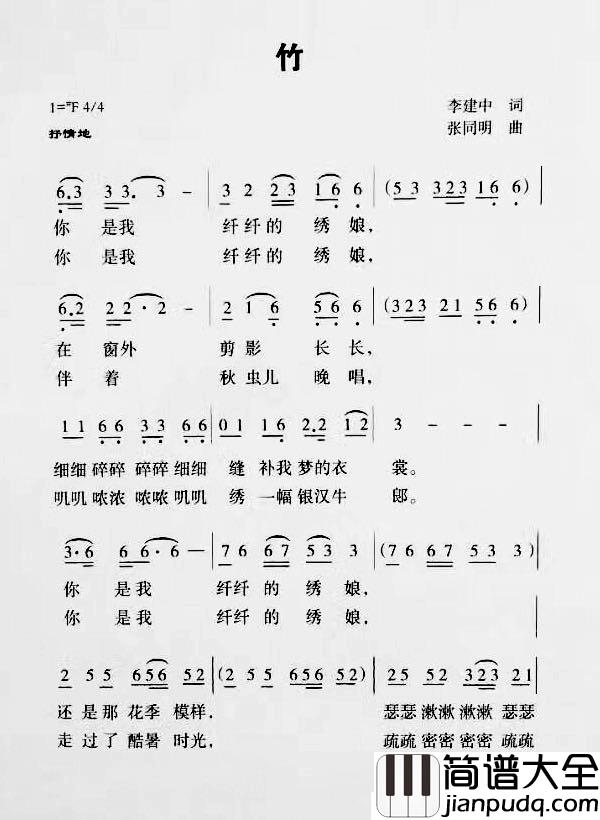 竹
1=#F 4/4
李建中 词
抒情地
张同明 曲
6.3 33.3 - | 3 2 23 16 6 | (53 323 16 6) |
你 是我 纤纤的 绣 娘，
你 是我 纤纤的 绣 娘，
6.2 22·2 - | 2 1 6 56 6 | (323 21 56 6) |
在 窗外 剪影 长长，
伴着 秋虫儿 晚唱，
11 66 33 66 | 01 16 2.2 12 | 3 - - - |
细细 碎碎 碎碎 细细 缝 补我 梦的衣 裳。
叽叽 哝浓 哝哝 叽叽 绣 一幅 银汉牛 郎。
3·6 66·6 — | 76 67 53 3 | (76 67 53 3) |
你 是我 纤纤的 绣 娘，
你 是我 纤纤的 绣 娘，
2 55 656 52 | (2 55 656 52) | 25 52 323 21
还 是那 花季 模样， 瑟瑟 漱漱 漱漱 瑟瑟
走 过了 酷暑 时光， 疏疏 密密 密密 疏疏
简谱大全
jianpudq.com